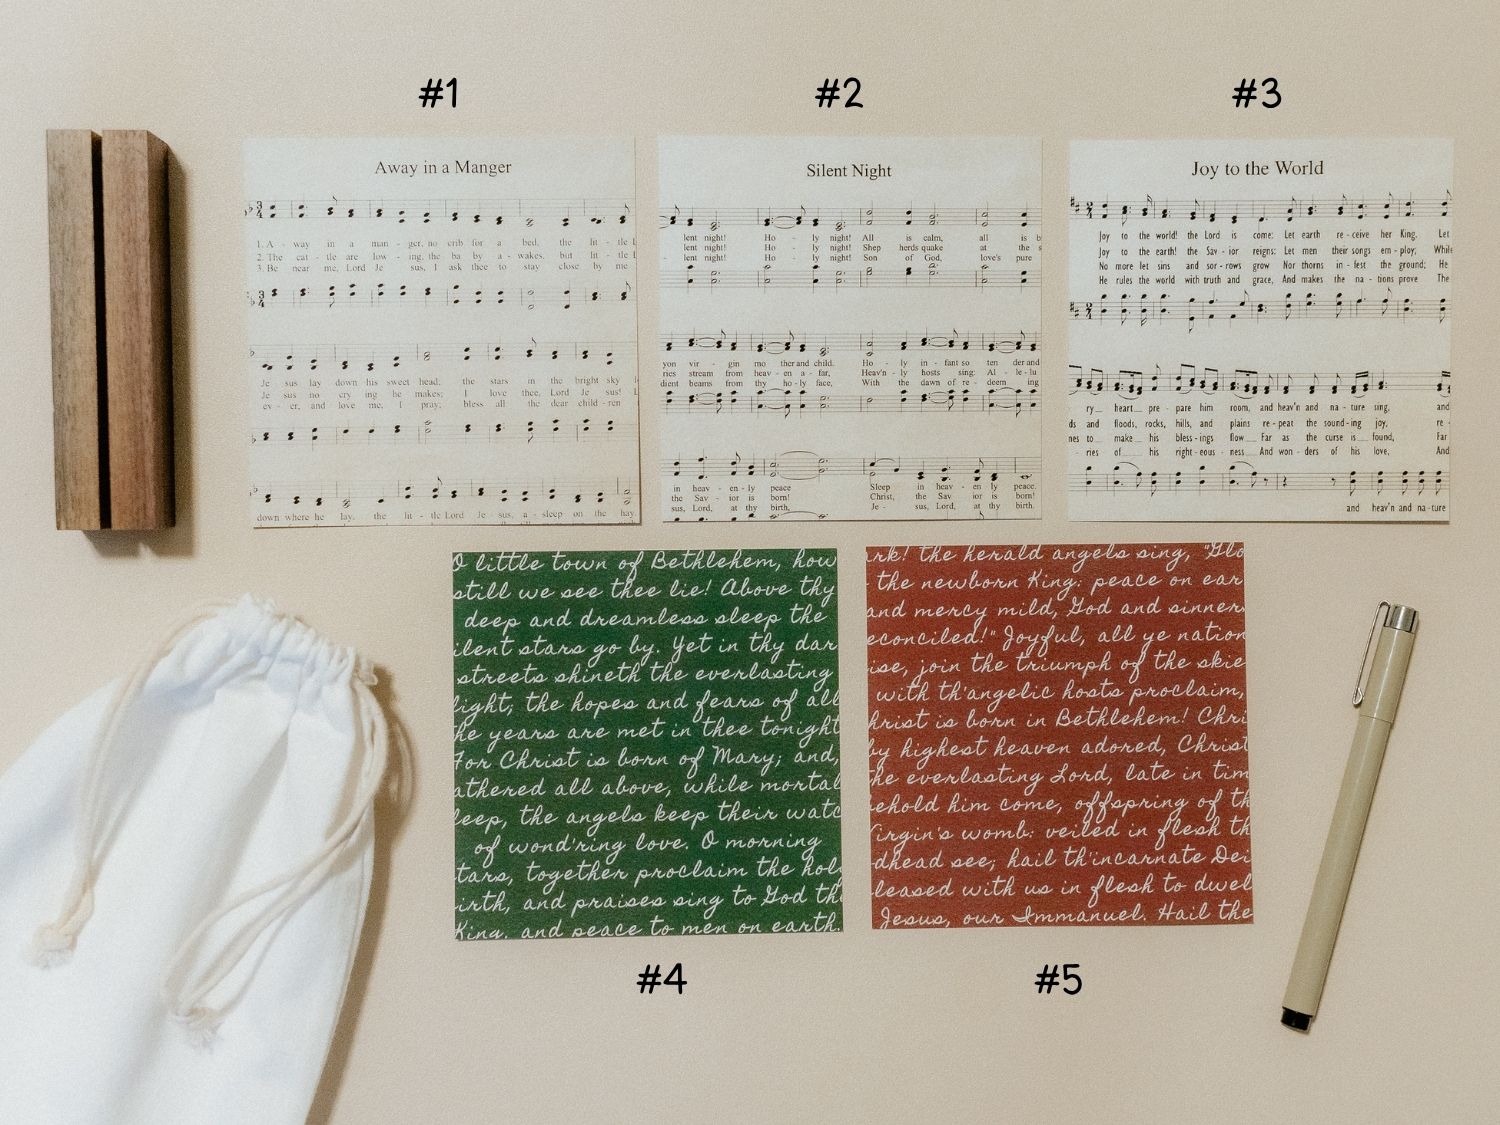 #1
#2
#3
Away in a Manger
1. A - way in a man - ger, no crib for a bed, the lit - tle L
2. The cat - tle are low - ing, the ba by a - wakes, but lit - tle
3. Be near me, Lord Je sus, I ask thee to stay close by me
Je sus lay down his sweet head; the stars in the bright sky
Je sus no cry ing he makes; I love thee, Lord Je sus! I
ev - er, and love me, I pray; bless all the dear child - ren
down where he lay, the lit - tle Lord Je - sus, a - sleep on the hay.
Silent Night
lent night! Ho - ly night! All is calm, all is b
lent night! Ho - ly night! Shep herds quake at the s
lent night! Ho - ly night! Son of God, love's pure
yon vir - gin mo ther and child. Ho - ly in - fant so ten der and
ries stream from heav - en a - far, Heav'n - ly hosts sing: Al - le - lu
dient beams from thy ho - ly face, With the dawn of re - deem ing
in heav - en - ly peace Sleep in heav - en ly peace.
the Sav - ior is born! Christ, the Sav ior is born!
sus, Lord, at thy birth, Je - sus, Lord, at thy birth.
Joy to the World
Joy to the world! the Lord is come: Let earth re - ceive her King, Let
Joy to the earth! the Sav - ior reigns: Let men their songs em - ploy; While
No more let sins and sor - rows grow Nor thorns in - fest the ground; He
He rules the world with truth and grace, And makes the na - tions prove The
ry heart pre - pare him room, and heav'n and na - ture sing, and
ds and floods, rocks, hills, and plains re - peat the sound - ing joy, re -
nes to make his bless - ings flow Far as the curse is found, Far
- ries of his right - eous - ness And won - ders of his love, And
and heav'n and na - ture
O little town of Bethlehem, how
still we see thee lie! Above thy
deep and dreamless sleep the
ilent stars go by. Yet in thy dar
streets shineth the everlasting
light; the hopes and fears of all
he years are met in thee tonight
For Christ is born of Mary; and,
athered all above, while mortal
leep, the angels keep their watc
of wond'ring love. O morning
tars, together proclaim the hol
irth, and praises sing to God th
King, and peace to men on earth.
rk! the herald angels sing, "Glo
the newborn King: peace on ear
and mercy mild, God and sinner
econciled!" Joyful, all ye nation
ise, join the triumph of the skie
with th'angelic hosts proclaim,
hrist is born in Bethlehem! Chri
by highest heaven adored, Christ
he everlasting Lord, late in tim
ehold him come, offspring of th
Virgin's womb: veiled in flesh th
dhead see; hail th'incarnate Dei
leased with us in flesh to dwel
Jesus, our Immanuel. Hail the
#4
#5